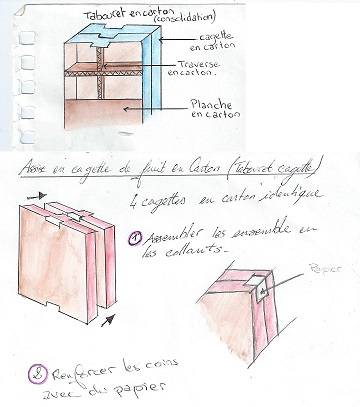 Tabouret en carton
(consolidation)
cagette
en carton
Traverse
en carton.
Planche
en carton
Assise en cagette de fruit en Carton (Tabouret cagette)
4 cagettes en carton identique
1 Assembler les ensemble en
les collants.
Papier
2 Renforcer les coins
avec du papier